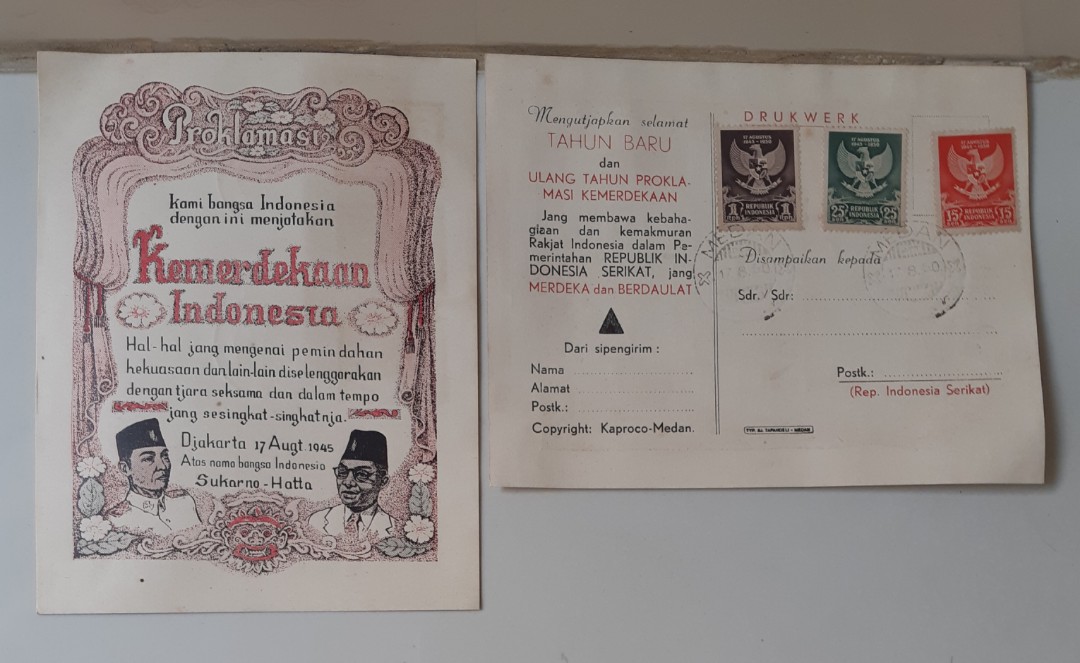 Proklamasi
Kami bangsa Indonesia
dengan ini menjatakan
Kemerdekaan
Indonesia
Hal-hal jang mengenai pemindahan
kekuasaan dan lain-lain diselenggarakan
dengan tjara seksama dan dalam tempo
jang sesingkat-singkatnja.
Djakarta 17 Augt. 1945
Atas nama bangsa Indonesia
Sukarno-Hatta
Mengutjapkan selamat
TAHUN BARU
dan
ULANG TAHUN PROKLA-
MASI KEMERDEKAAN
Jang membawa kebaha-
giaan dan kemakmuran
Rakjat Indonesia dalam Pe-
merintahan REPUBLIK IN-
DONESIA SERIKAT, jang
MERDEKA dan BERDAULAT
Dari sipengirim :
Nama
Alamat
Postk.:
Copyright: Kaproco-Medan.
DRUKWERK
17 AGUSTUS
1945 - 1950
1 RPH
REPUBLIK
INDONESIA
17 AGUSTUS
1945 - 1950
25 SEN 25 SEN
REPUBLIK
INDONESIA
17 AGUSTUS
1945 - 1950
15 SEN 15 SEN
REPUBLIK
INDONESIA
MEDAN
MEDAN
Disampaikan kepada
Sdr. / Sdr:
Postk.:
(Rep. Indonesia Serikat)
MEDAN